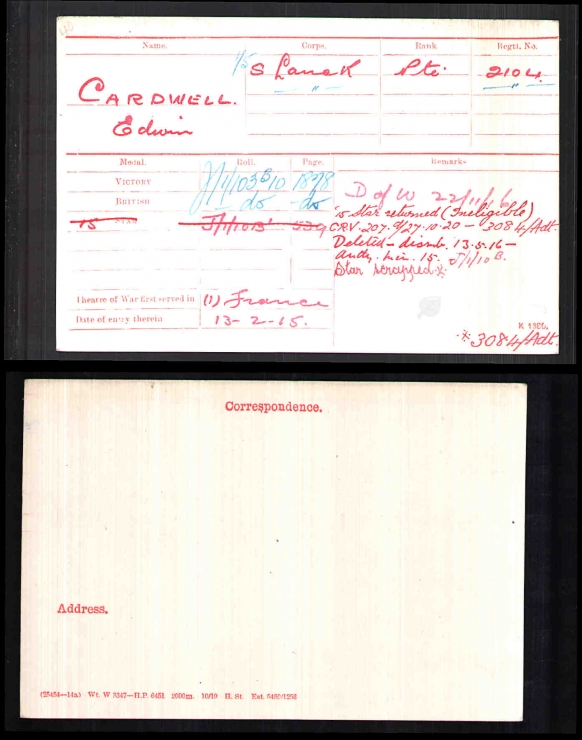 Name. Corps. Rank Regtl. No.
1/5 S Lanc R Pte. 2104.
CARDWELL. " "
Edwin
Medal. Roll. Page. Remarks
VICTORY J/1/103 B10 1878 D of W 22/11/16
BRITISH do do '15 Star returned (Ineligible)
15 STAR J/1/10B 539 CRV. 207. 9/27.10.20 – 3084/Adt.
Deleted – disemb. 13.5.16 –
Star scrapped ※
Theatre of War first served in (1) France
Date of entry therein 13-2-15.
K 1380.
※ 3084/Adt.
Correspondence.
Address.
(25454—14a) Wt. W 3347—H.P. 6451 2000m. 10/19 H. St.